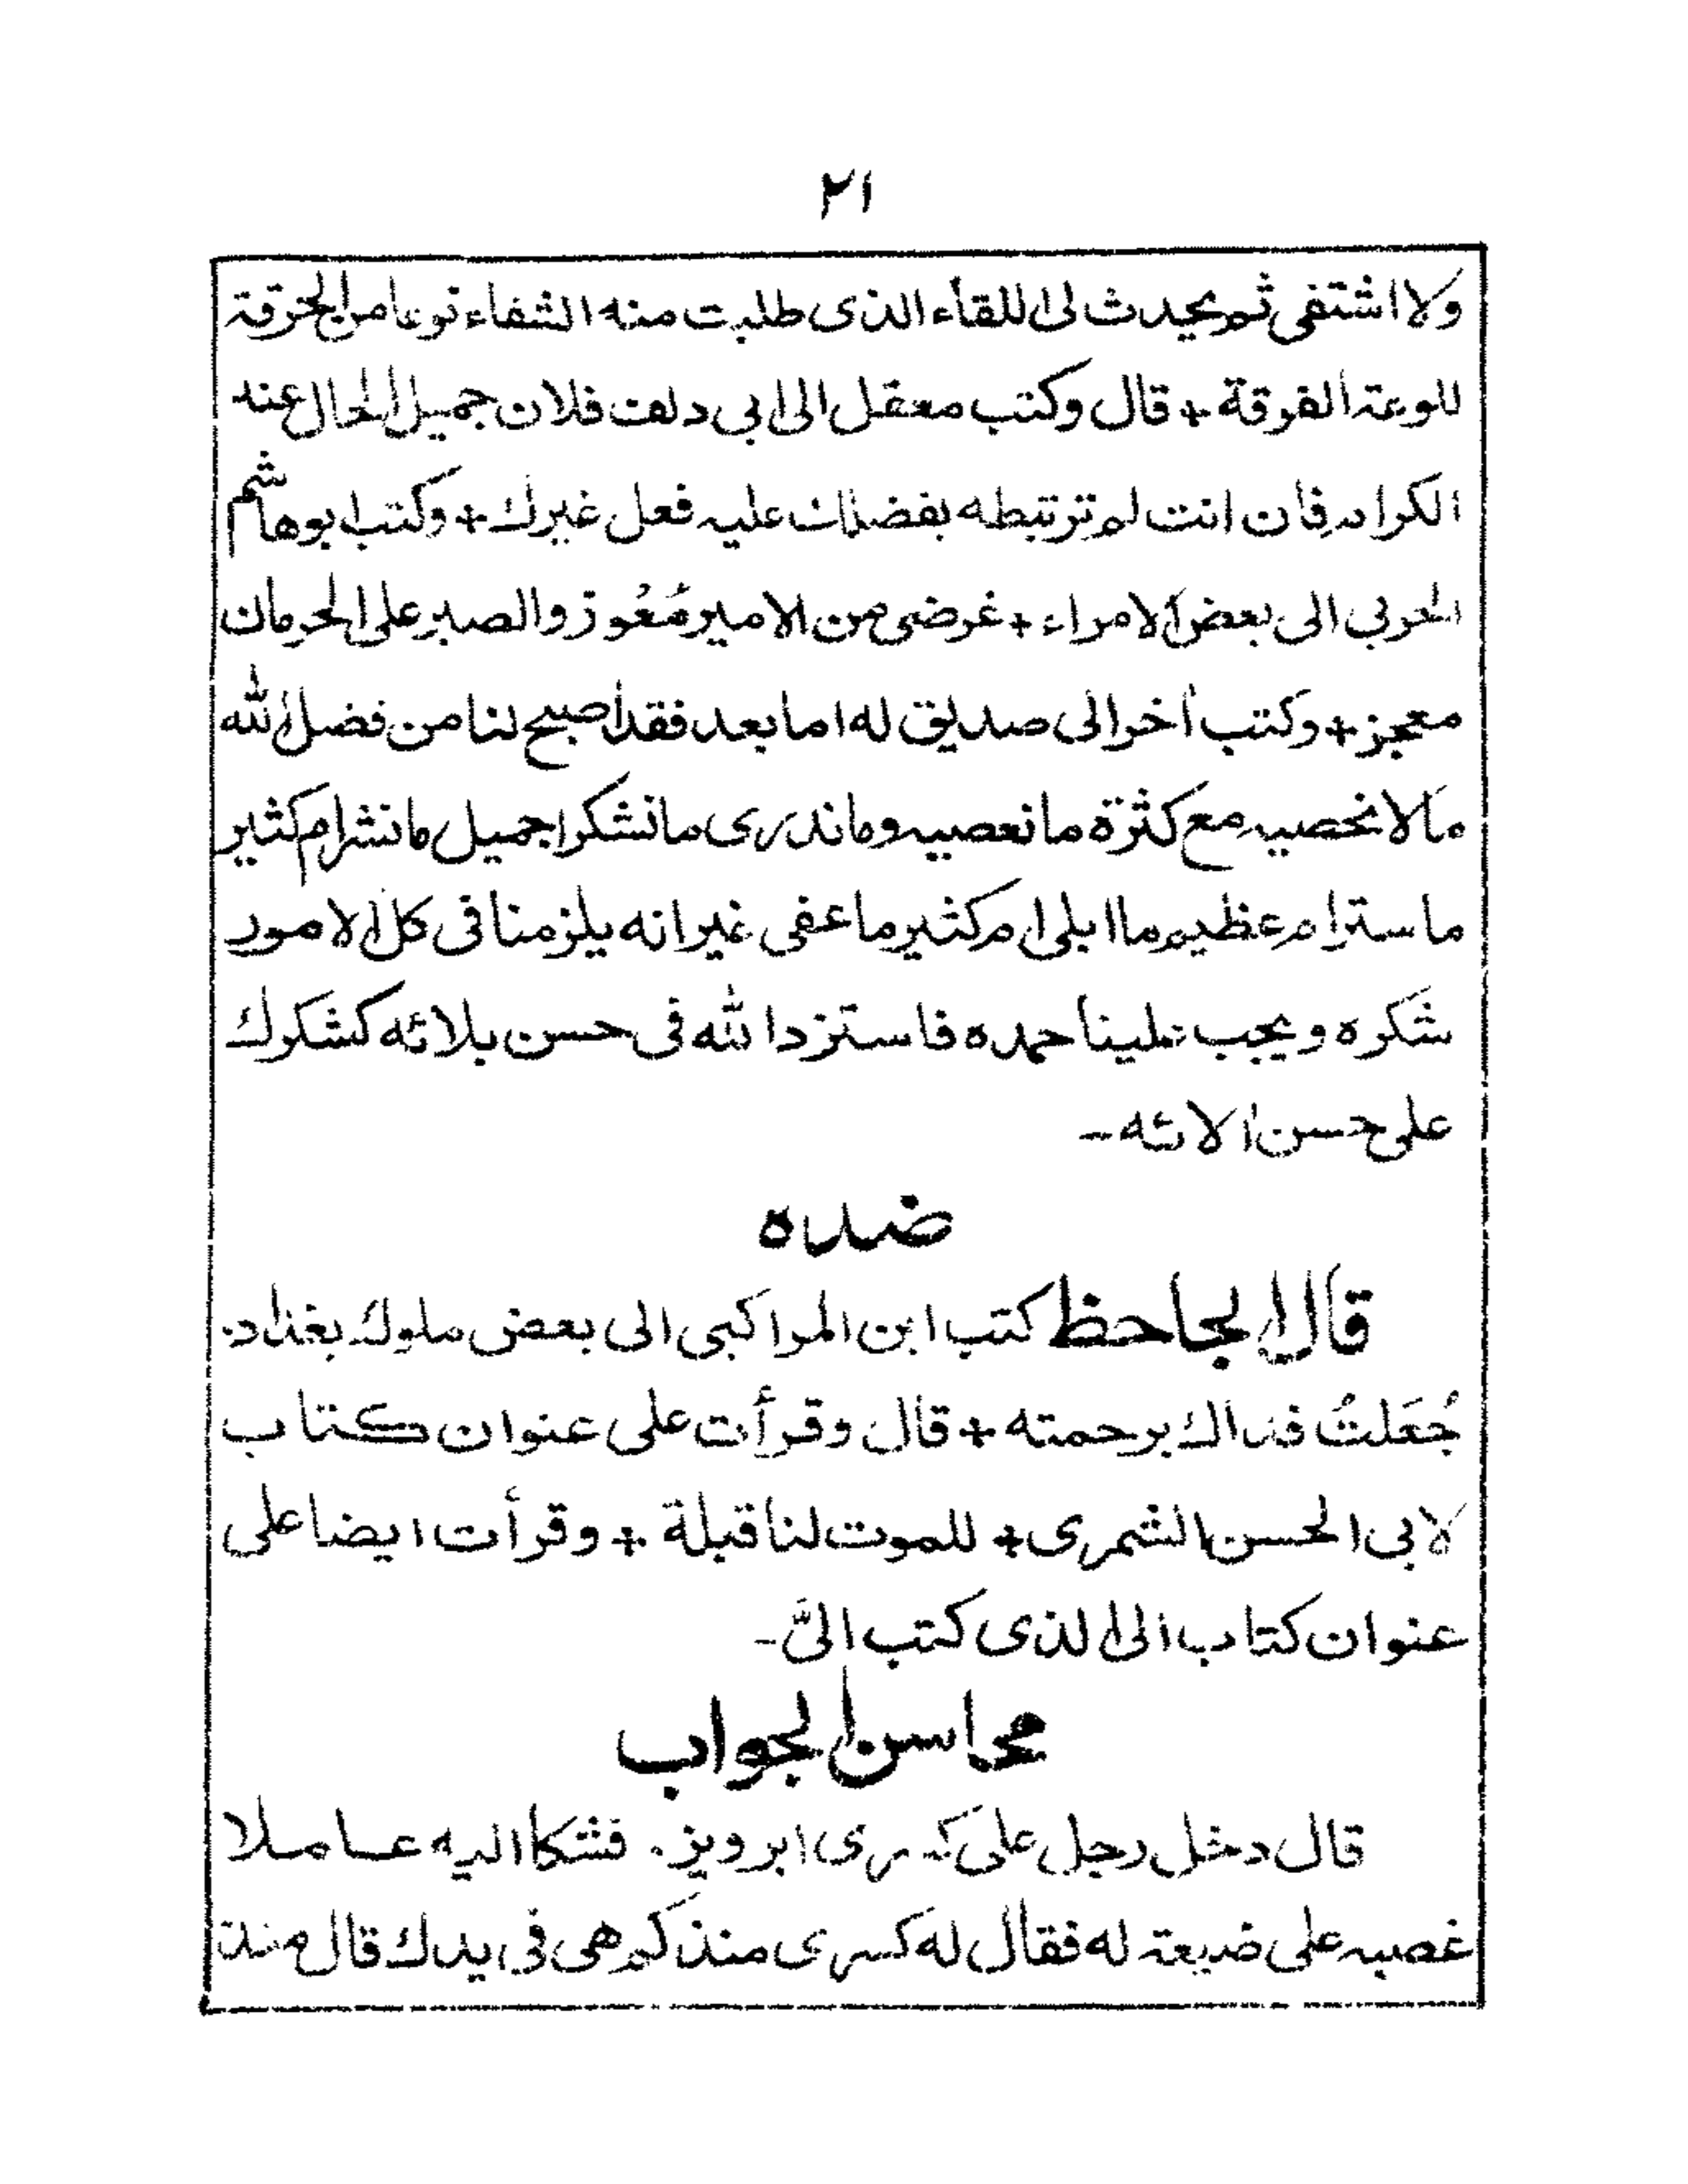 ٢١
ولا اشتفى ثم يحدث لى اللقاء الذى طلبت منه الشفاء نوعا من الحرقة
للوعة الفرقة + قال وكتب معقل الى ابى دلف فلان جميل الحال عند
الكرام فان انت لم ترتبطه بفضلك عليه فعل غيرك + وكتب ابوهاشم
الحربى الى بعض الامراء + غرضى من الامير مُعْوز والصبر على الحرمان
معجز + وكتب أخر الى صديق له اما بعد فقد اصبح لنا من فضل الله
مالا نحصيه مع كثرة ما نعصيه وما ندرى ما نشكر اجميل ما نشر ام كثير
ما ستر ام عظيم ما ابلى ام كثير ما عفى غير انه يلزمنا فى كل الامور
شكره ويجب علينا حمده فاستزد الله فى حسن بلائه كشكرك
على حسن الائه -
ضده
قال الجاحظ كتب ابن المراكبى الى بعض ملوك بغداد.
جُعَلتُ فداك برحمته + قال وقرأت على عنوان كتاب
لابى الحسن الشمرى + للموت لنا قبلة + وقرأت ايضا على
عنوان كتاب الى الذى كتب الىَّ -
محاسن الجواب
قال دخل رجل على كسرى ابرويز. فشكا اليه عاملا
غصبه على ضيعة له فقال له كسرى منذ كم هى فى يدك قال منذ